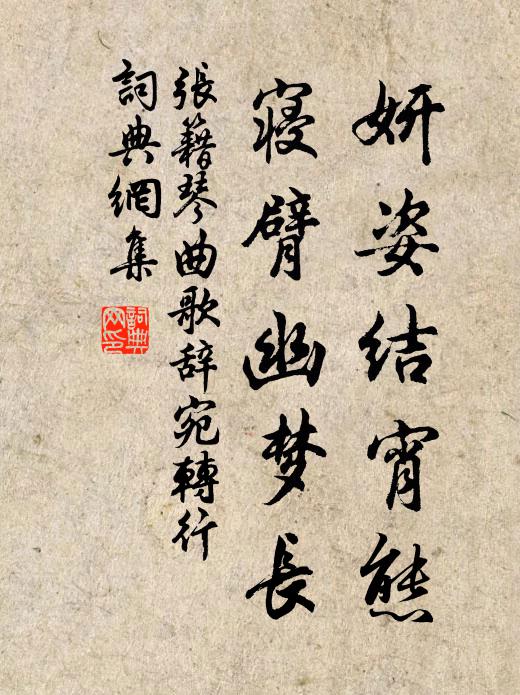 妍姿结宵態
寝臂幽梦長
張籍琴曲歌辞宛轉行
詞典網集
詞典网印